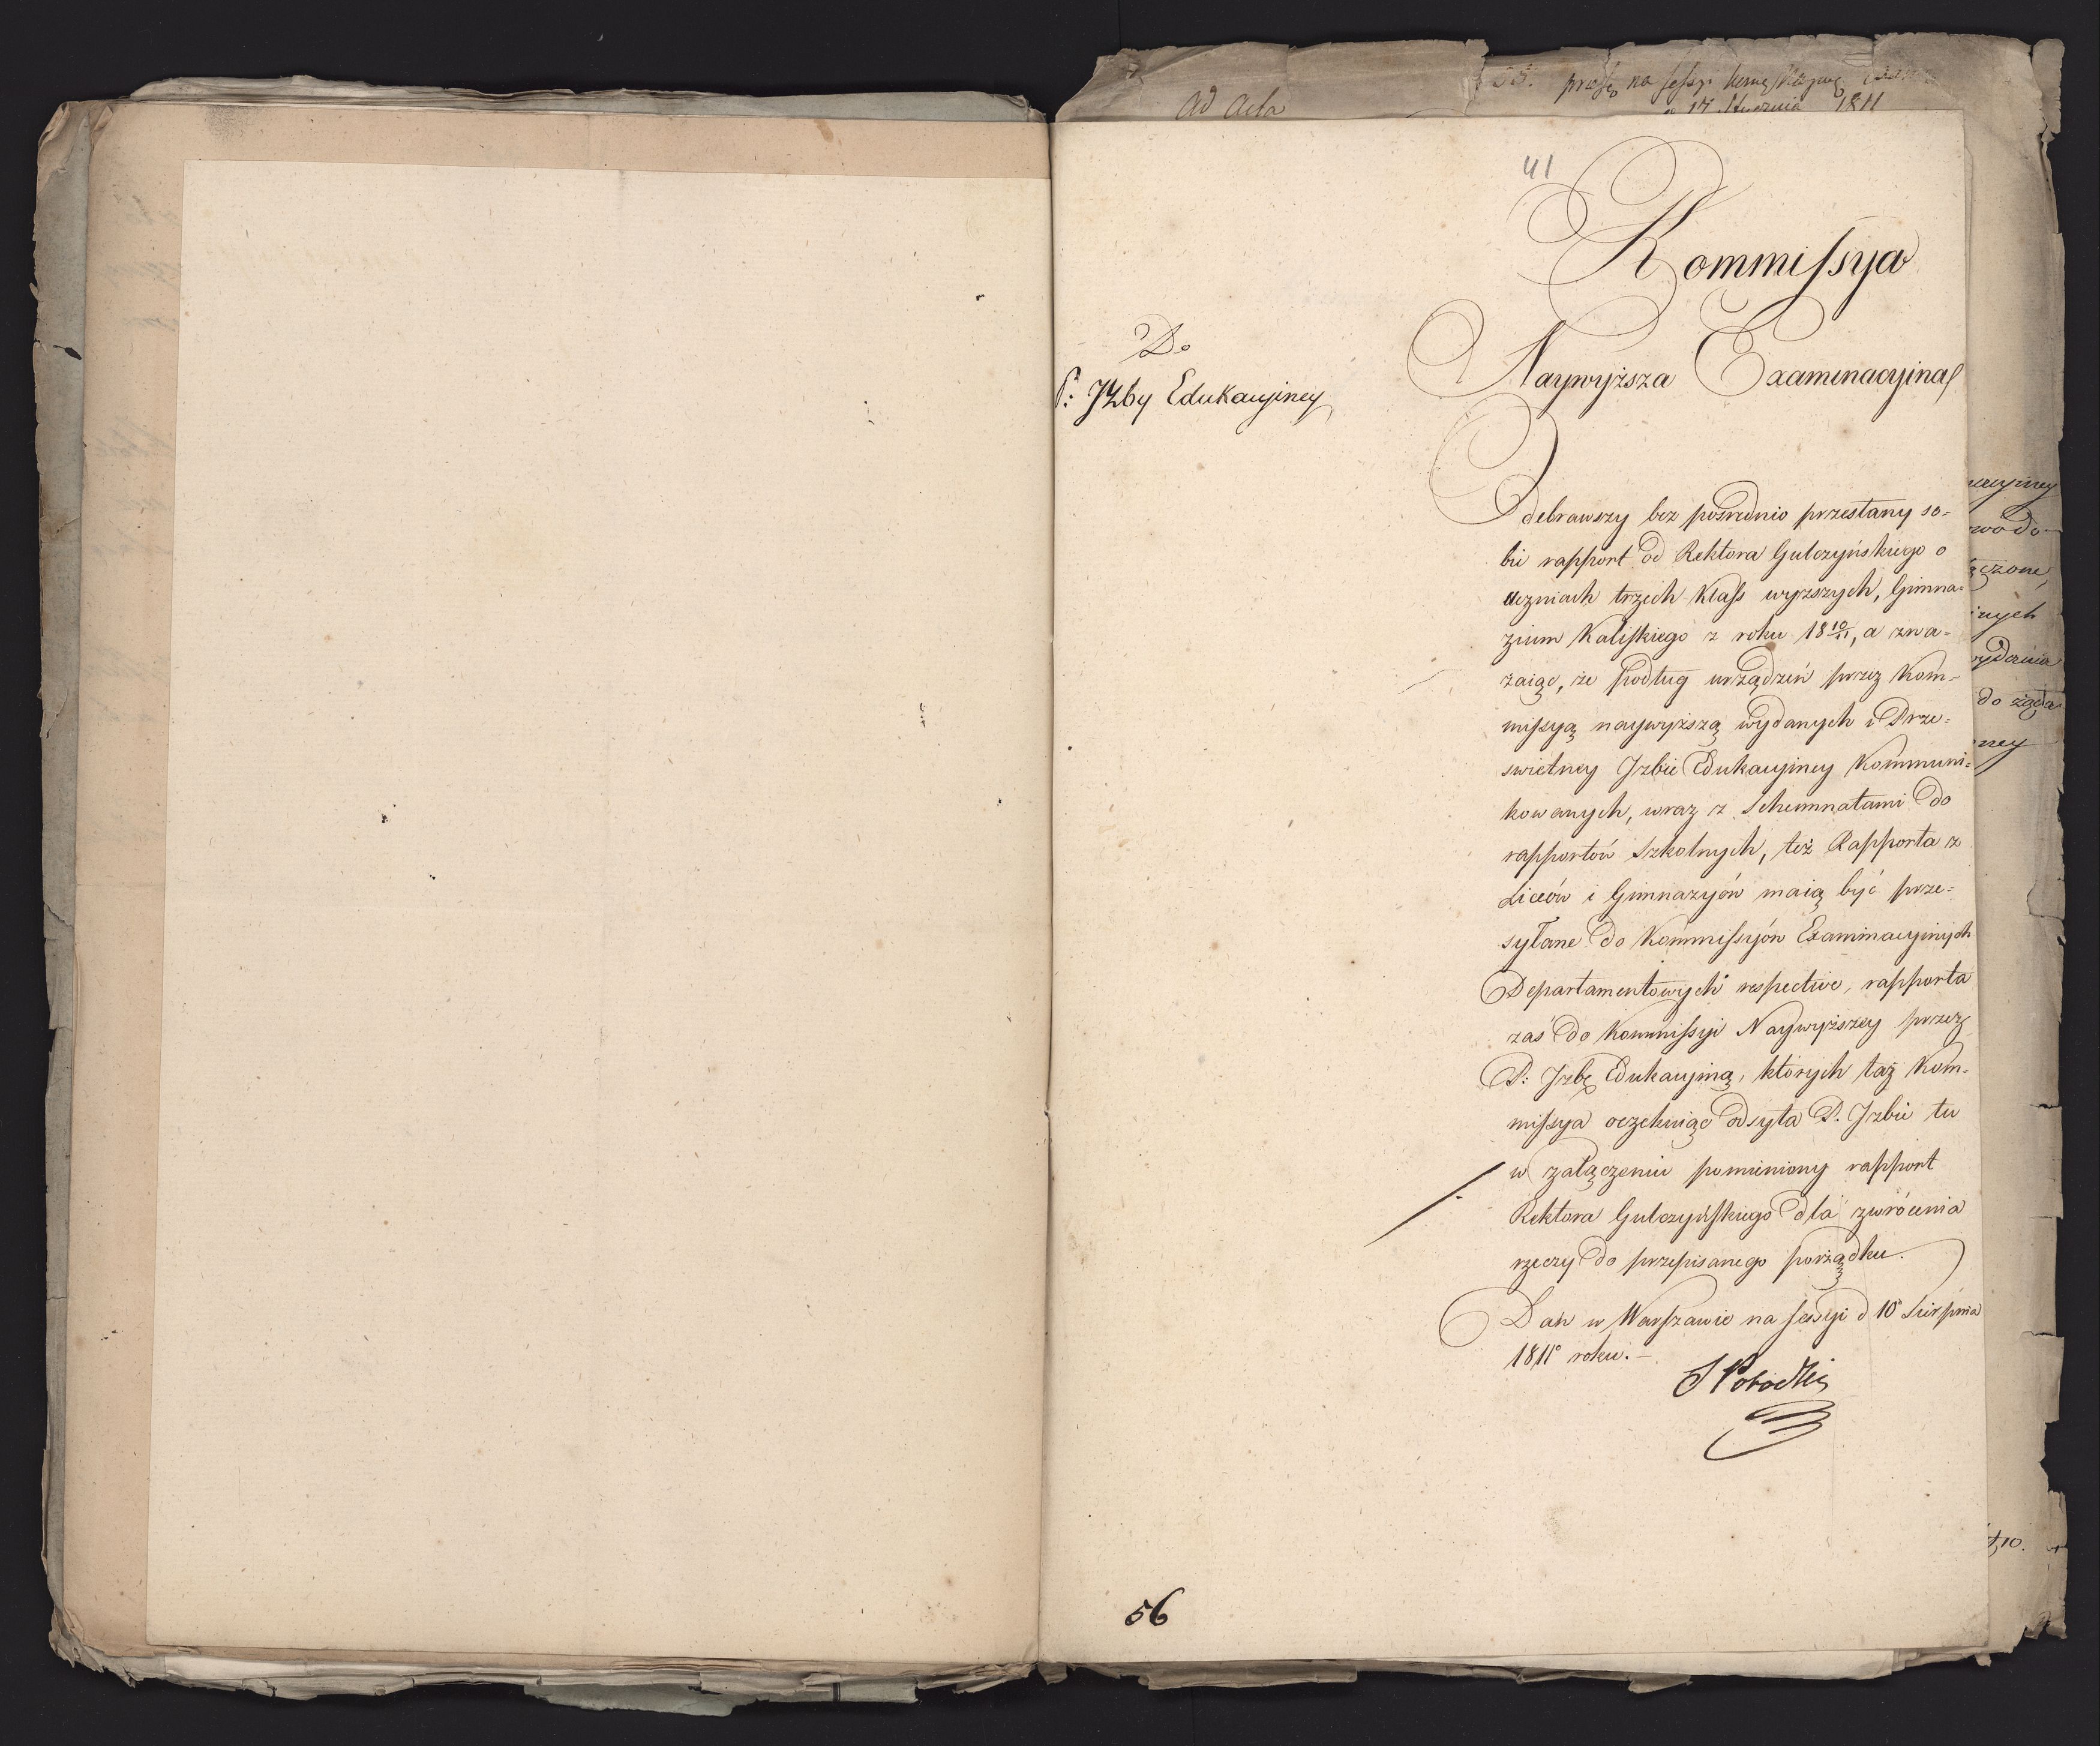 Ad Acta
41
Kommissya
Naywyższa Examinacyina
Do
P: Izby Edukacyiney
Odebrawszy bez pośrednio przesłany so-
bie rapport od Rektora Gulczyńskiego o
uczniach trzech klass wyższych, Gimna-
zium Kaliskiego z roku 18 10/11, a zwa-
żaiąc, że podług urządzeń przez Kom-
missyą naywyższą wydanych i Prze-
swietney Izbie Edukacyiney kommuni-
kowanych, wraz z Schemmatami do
rapportów szkolnych, też Rapporta z
Liceów i Gimnazyów maią być prze-
syłane do Kommissyów Examinacyinych
Departamentowych respective, rapporta
zaś do Kommissyi Naywyższey przez
P: Izbę Edukacyiną, których taż Kom-
missya oczekuiąc odsyła P. Izbie tu
w załączeniu pomieniony rapport
Rektora Gulczyńskiego dla zwrócenia
rzeczy do przepisanego porządku.
Dan w Warszawie na sessyi d 10° Sierpnia
1811° roku.-
S Potocki
56